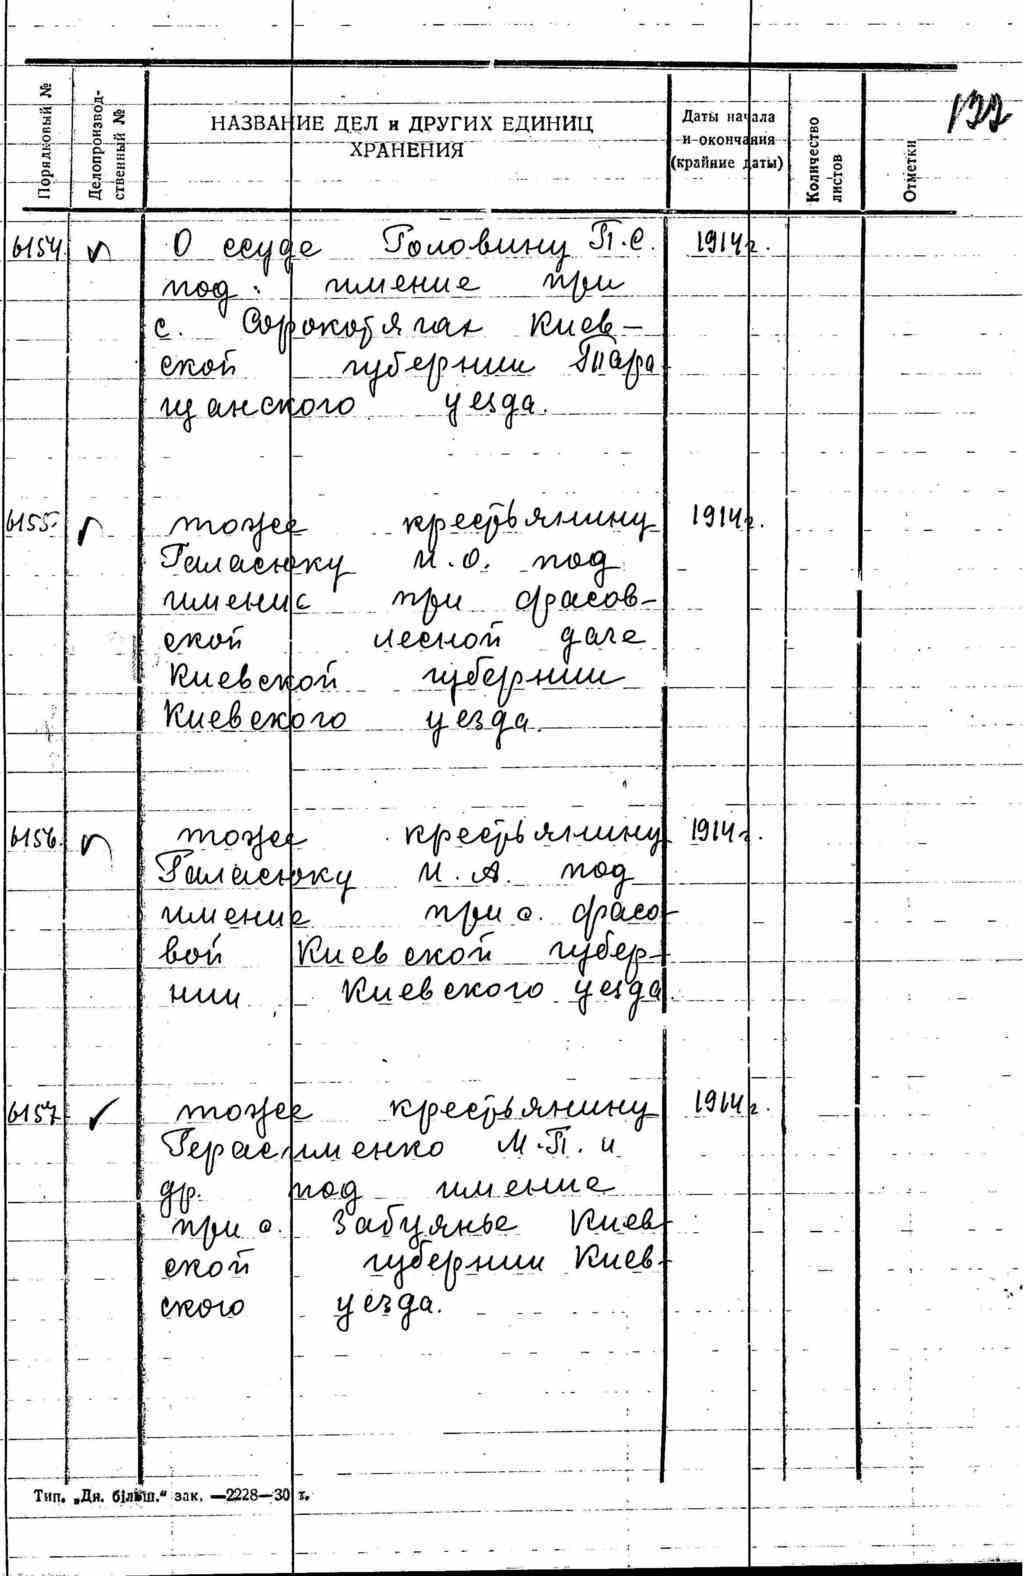 132
Порядковый №
Делопроизвод-
ственный №
НАЗВАНИЕ ДЕЛ и ДРУГИХ ЕДИНИЦ
ХРАНЕНИЯ
Даты начала
и окончания
(крайние даты)
Количество
листов
Отметки
6154. О ссуде Головину П.С. 1914г.
под имение при
с. Сорокотягах Киев-
ской губернии Тара
щанского уезда.
6155. тоже крестьянину 1914г.
Галасюку И.О. под
имение при Фасов-
ской лесной даче
Киевской губернии
Киевского уезда.
6156. тоже крестьянину 1914г.
Галасюку И.А. под
имение при с. Фасо-
вой Киевской губер-
нии Киевского уезда.
6157. тоже крестьянину 1914г.
Герасименко М.П. и
др. под имение
при с. Забуянье Киев-
ской губернии Киев-
ского уезда.
Тип. „Дн. більш." зак. —2228—30 т.